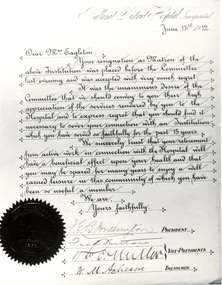 June 13th 1912
Dear Mrs Eagleton:
Your resignation as Matron of the
above Institution was placed before the Committee
last evening and was accepted with very much regret.
It was the unanimous desire of the
Committee that we should convey to you their high
appreciation of the services rendered by you to the
Hospital and to express regret that you should find it
necessary to sever your connection with an Institution
which you have served so faithfully for the past 15 years.
We sincerely trust that your retirement
from active work in connection with the Hospital will
have a beneficial effect upon your health and that
you may be spared for many years to enjoy a well
earned leisure in this community of which you have
been so useful a member.
We are,
Yours faithfully,
PRESIDENT.
VICE-PRESIDENTS.
W. M. Acheson TREASURER.